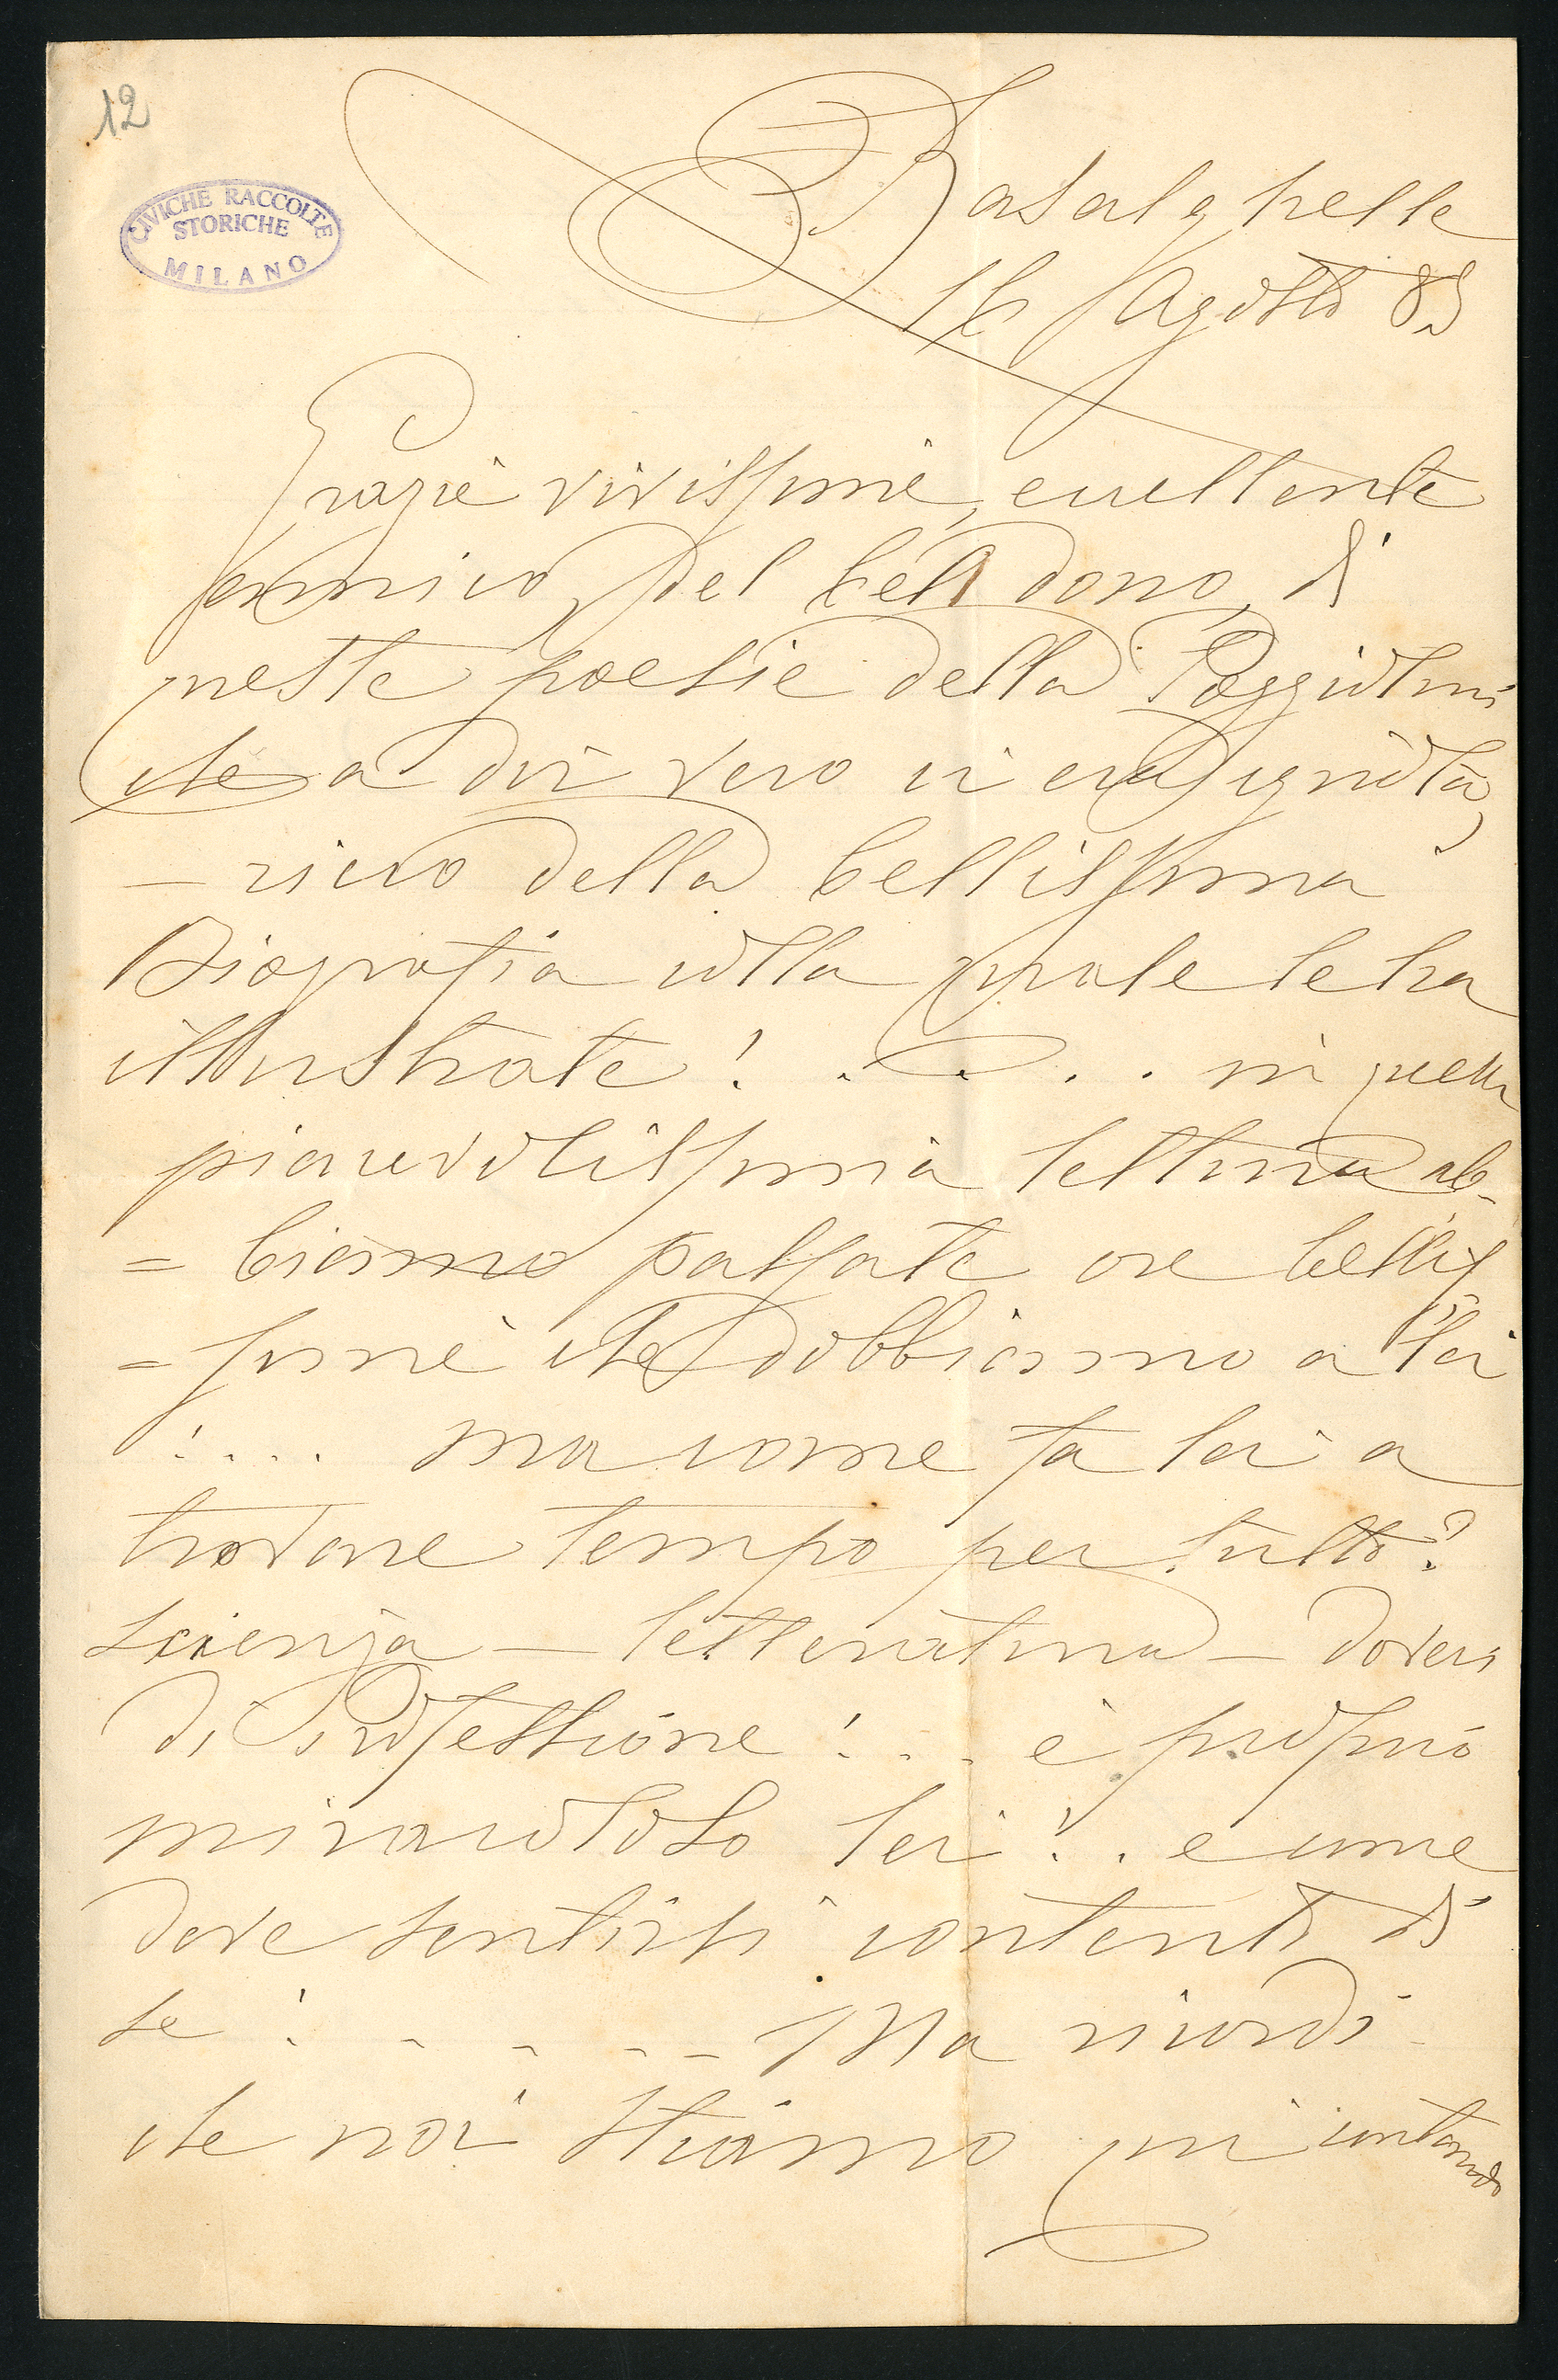 12
CIVICHE RACCOLTE
STORICHE
MILANO
Basalghelle
16 Agosto 85
Grazie vivissime, eccellente
amico, del bel dono, di
queste poesie della Poggiolini
che a dir vero ci era ignota,
– ricco della bellissima
Biografia colla quale le ha
illustrate! . . . . in quella
piacevolissima lettura ab-
= biamo passate ore bellis
= sime che dobbiamo a lei
! . . . ma come fa lei a
trovare tempo per tutto?
Scienza – letteratura – doveri
di Professione! . . . è proprio
miracoloso lei! . . e come
deve sentirsi contento di
se! - - - - - Ma ricordi
che noi stiamo qui contando